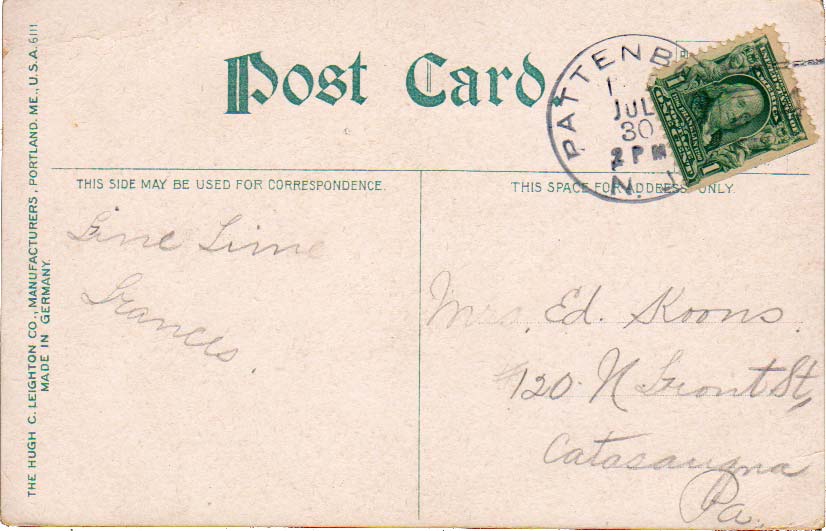 THE HUGH C. LEIGHTON CO., MANUFACTURERS, PORTLAND, ME., U.S.A. 6111
MADE IN GERMANY.
Post Card.
PATTENB
JUL
30
2 PM
N. J.
THIS SIDE MAY BE USED FOR CORRESPONDENCE.
THIS SPACE FOR ADDRESS ONLY.
Fine Time
Frances.
Mrs. Ed. Koons.
#120 N Front St,
Catasauqua
Pa.